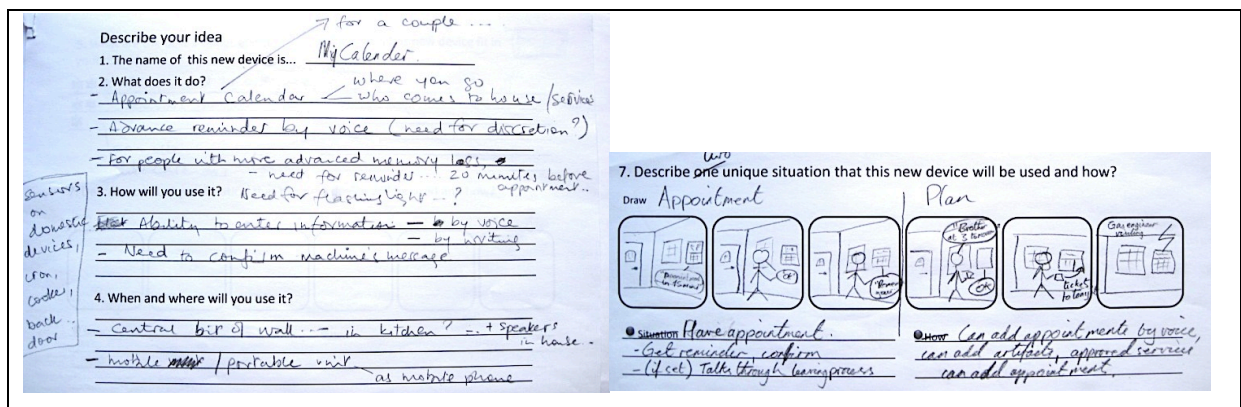 for a couple ...
Describe your idea
1. The name of this new device is... MyCalender
2. What does it do?
where you go
- Appointment Calendar who comes to house / services
- Advance reminder by voice (need for discretion?)
- For people with more advanced memory loss,
- need for reminder... 20 minutes before appointment..
3. How will you use it? Need for flashing light ..?
- Ability to enter information - by voice
- by writing
- Need to confirm machine's message
4. When and where will you use it?
- Central bit of wall... - in kitchen? -. + speakers in house..
- mobile / portable unit
as mobile phone
sensors
on
domestic
devices,
iron,
cooker,
back..
door
two
7. Describe one unique situation that this new device will be used and how?
Draw Appointment
Plan
OK
Brother at 3 tomorrow
OK
tickets to
Gas engineer visiting
Situation Have appointment.
- Get reminder, confirm
- (if set) Talks through leaving process
How Can add appointments by voice,
can add artefacts, approved service
can add appointment.